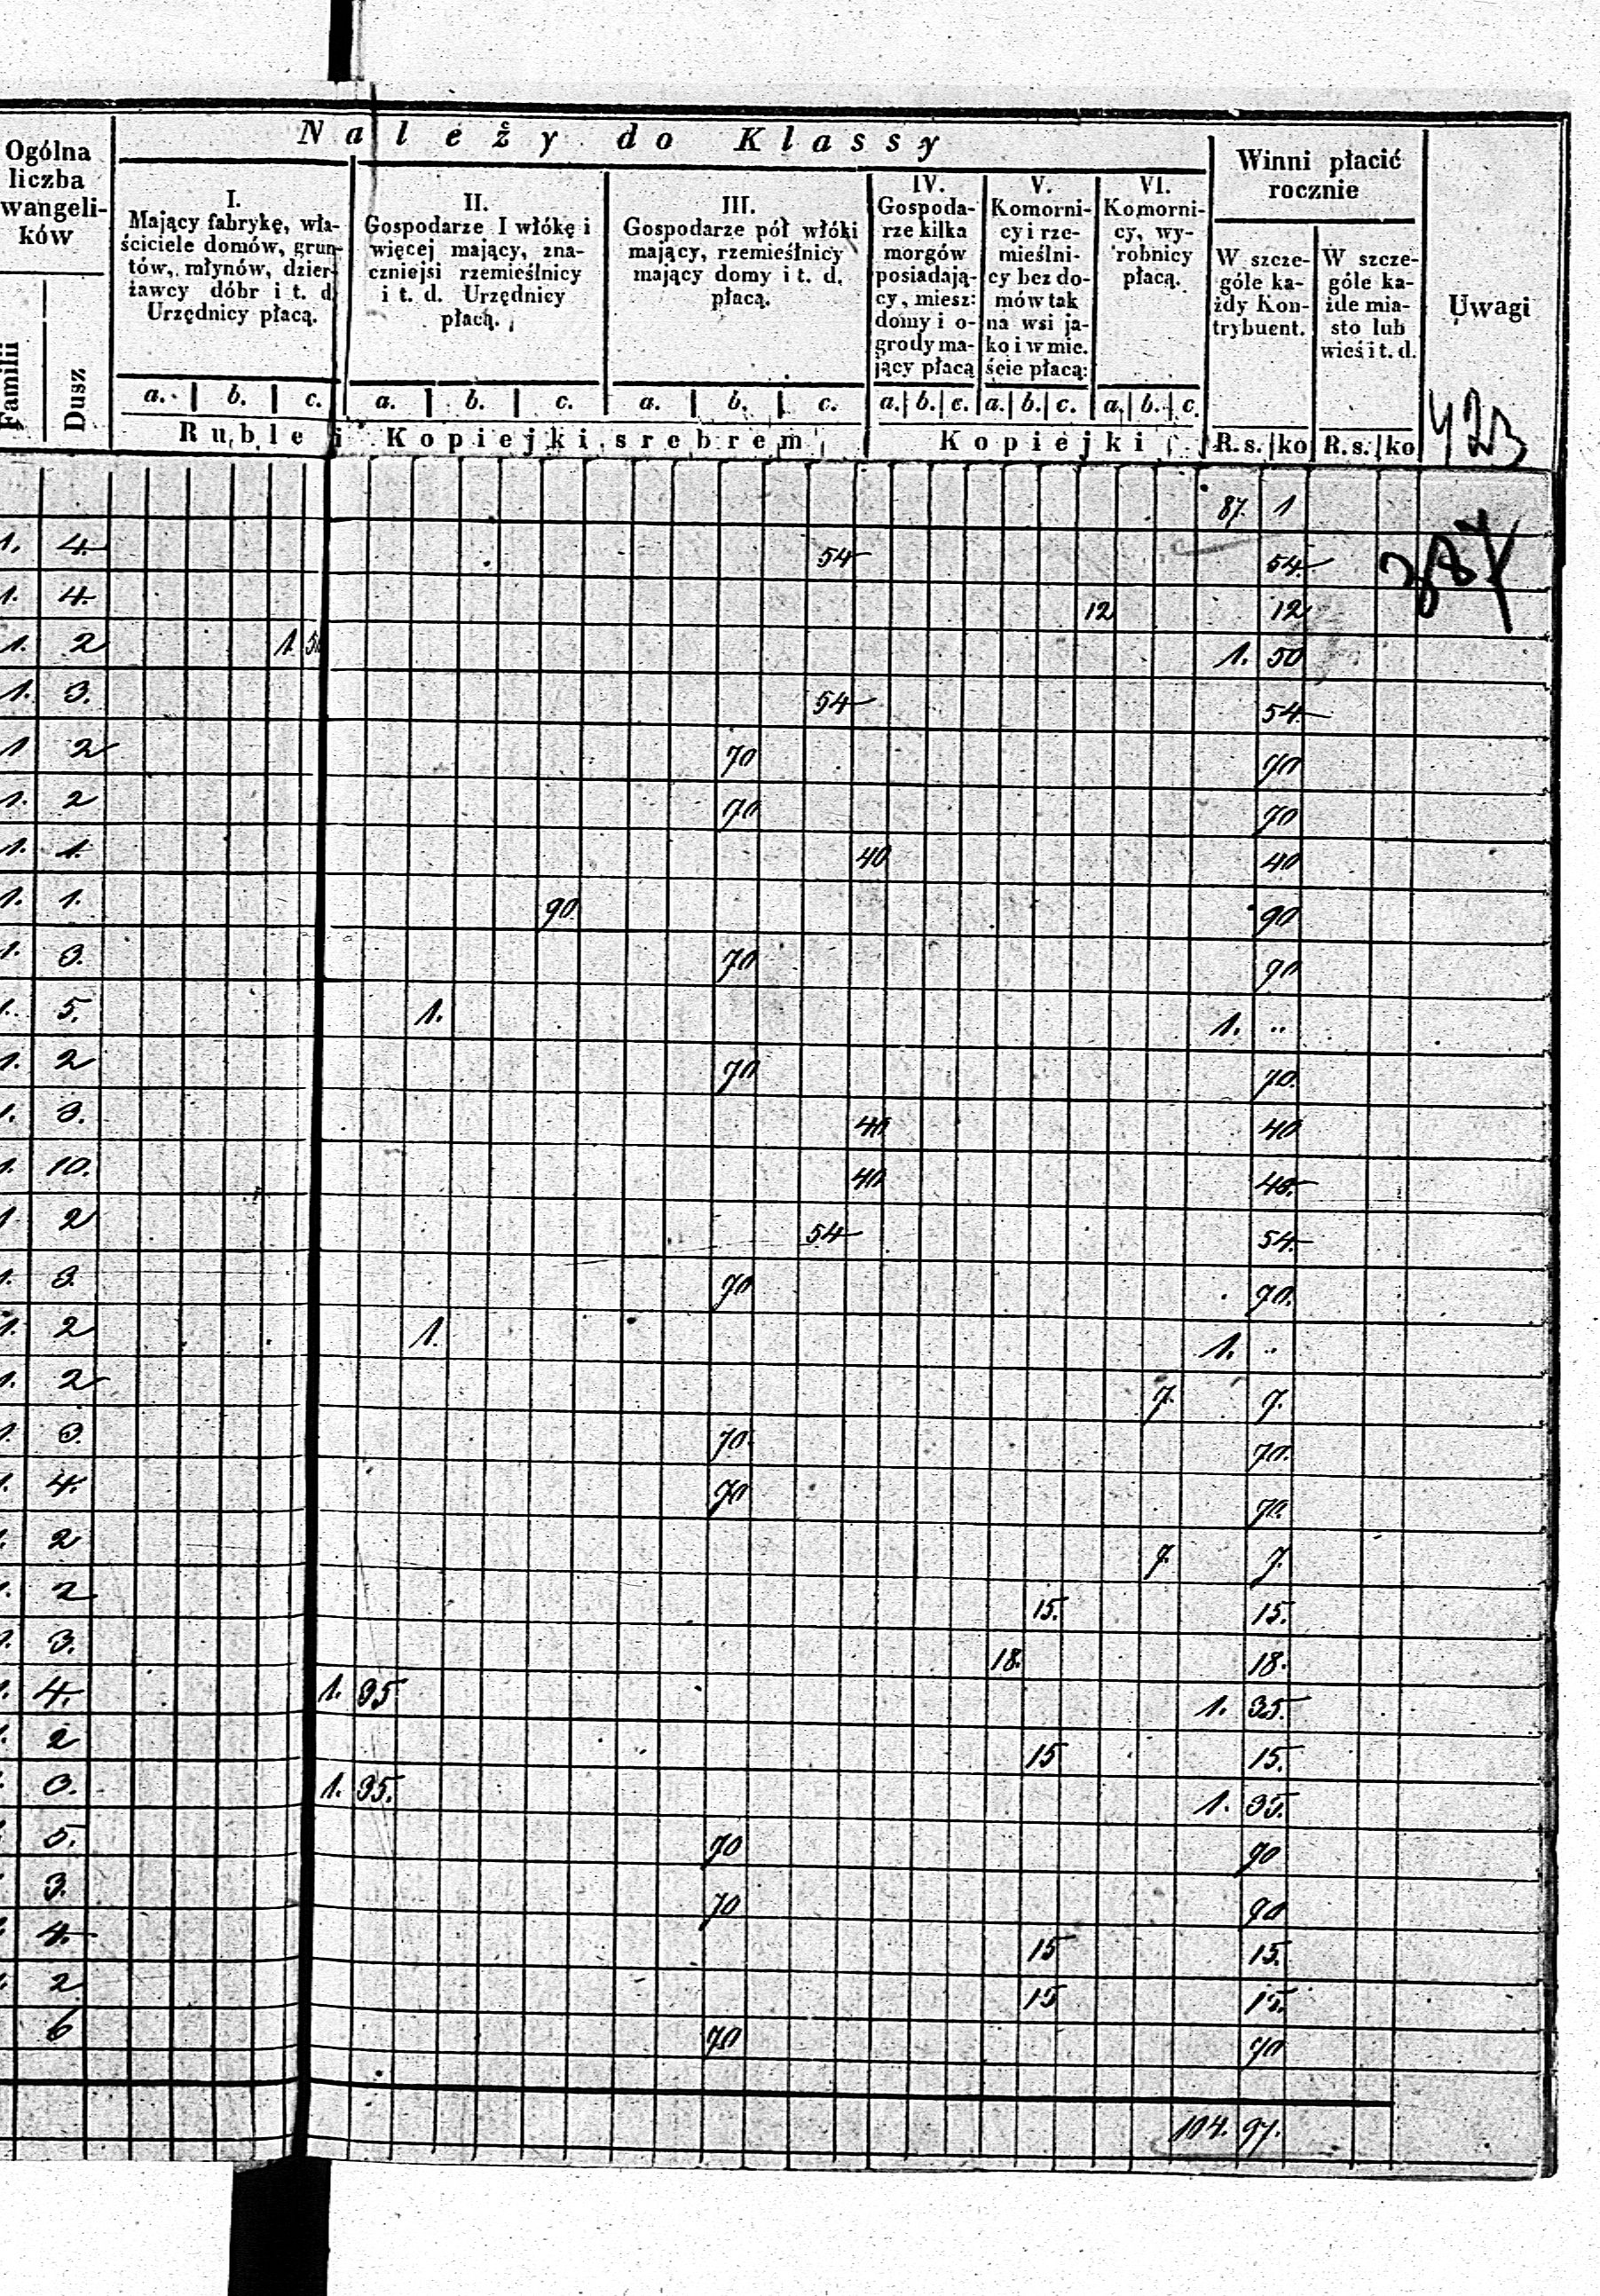 Należy do Klassy
Ogólna
liczba
wangeli-
ków
Familii
Dusz
I.
Mający fabrykę, wła-
ściciele domów, grun-
tów, młynów, dzier-
żawcy dóbr i t. d.
Urzędnicy płacą.
II.
Gospodarze I włókę i
więcej mający, zna-
czniejsi rzemieślnicy
i t. d. Urzędnicy
płacą.
III.
Gospodarze pół włóki
mający, rzemieślnicy
mający domy i t. d.
płacą.
IV.
Gospoda-
rze kilka
morgów
posiadają-
cy, miesz:
domy i o-
grody ma-
jący płacą
V.
Komorni-
cy i rze-
mieślni-
cy bez do-
mów tak
na wsi ja-
ko i w mie.
ście płacą:
VI.
Komorni-
cy, wy-
robnicy
płacą.
Winni płacić
rocznie
W szcze-
góle ka-
żdy Kon-
trybuent.
W szcze-
góle ka-
żde mia-
sto lub
wieś i t. d.
Uwagi
a. b. c. a. b. c. a. b. c. a. b. c. a. b. c. a. b. c.
Ruble i Kopiejki srebrem Kopiejki R.s. ko R.s. ko
423
87. 1
387
1. 4. 54 54.
1. 4. 12 12
1. 2 1. 50 1. 50
1. 3. 54 54
1 2 70 70
1. 2 70 70
1. 1. 40 40
1. 1. 90. 90
1. 3. 70 70
1. 5. 1. 1. ..
1. 2 70 70.
1. 3. 40 40
1. 10. 40 40.
1 2 54 54.
1. 3. 70 70.
1. 2 1. 1. ..
1. 2 7. 7.
1. 3. 70. 70.
1. 4. 70 70.
1. 2 7. 7.
1. 2 15. 15.
1. 3. 18. 18.
1. 4. 1. 35 1. 35.
1. 2 15 15.
3. 1. 35. 1. 35.
5. 70 70
3. 70 70
4. 15 15.
2 15 15.
6 70 70
104. 97.